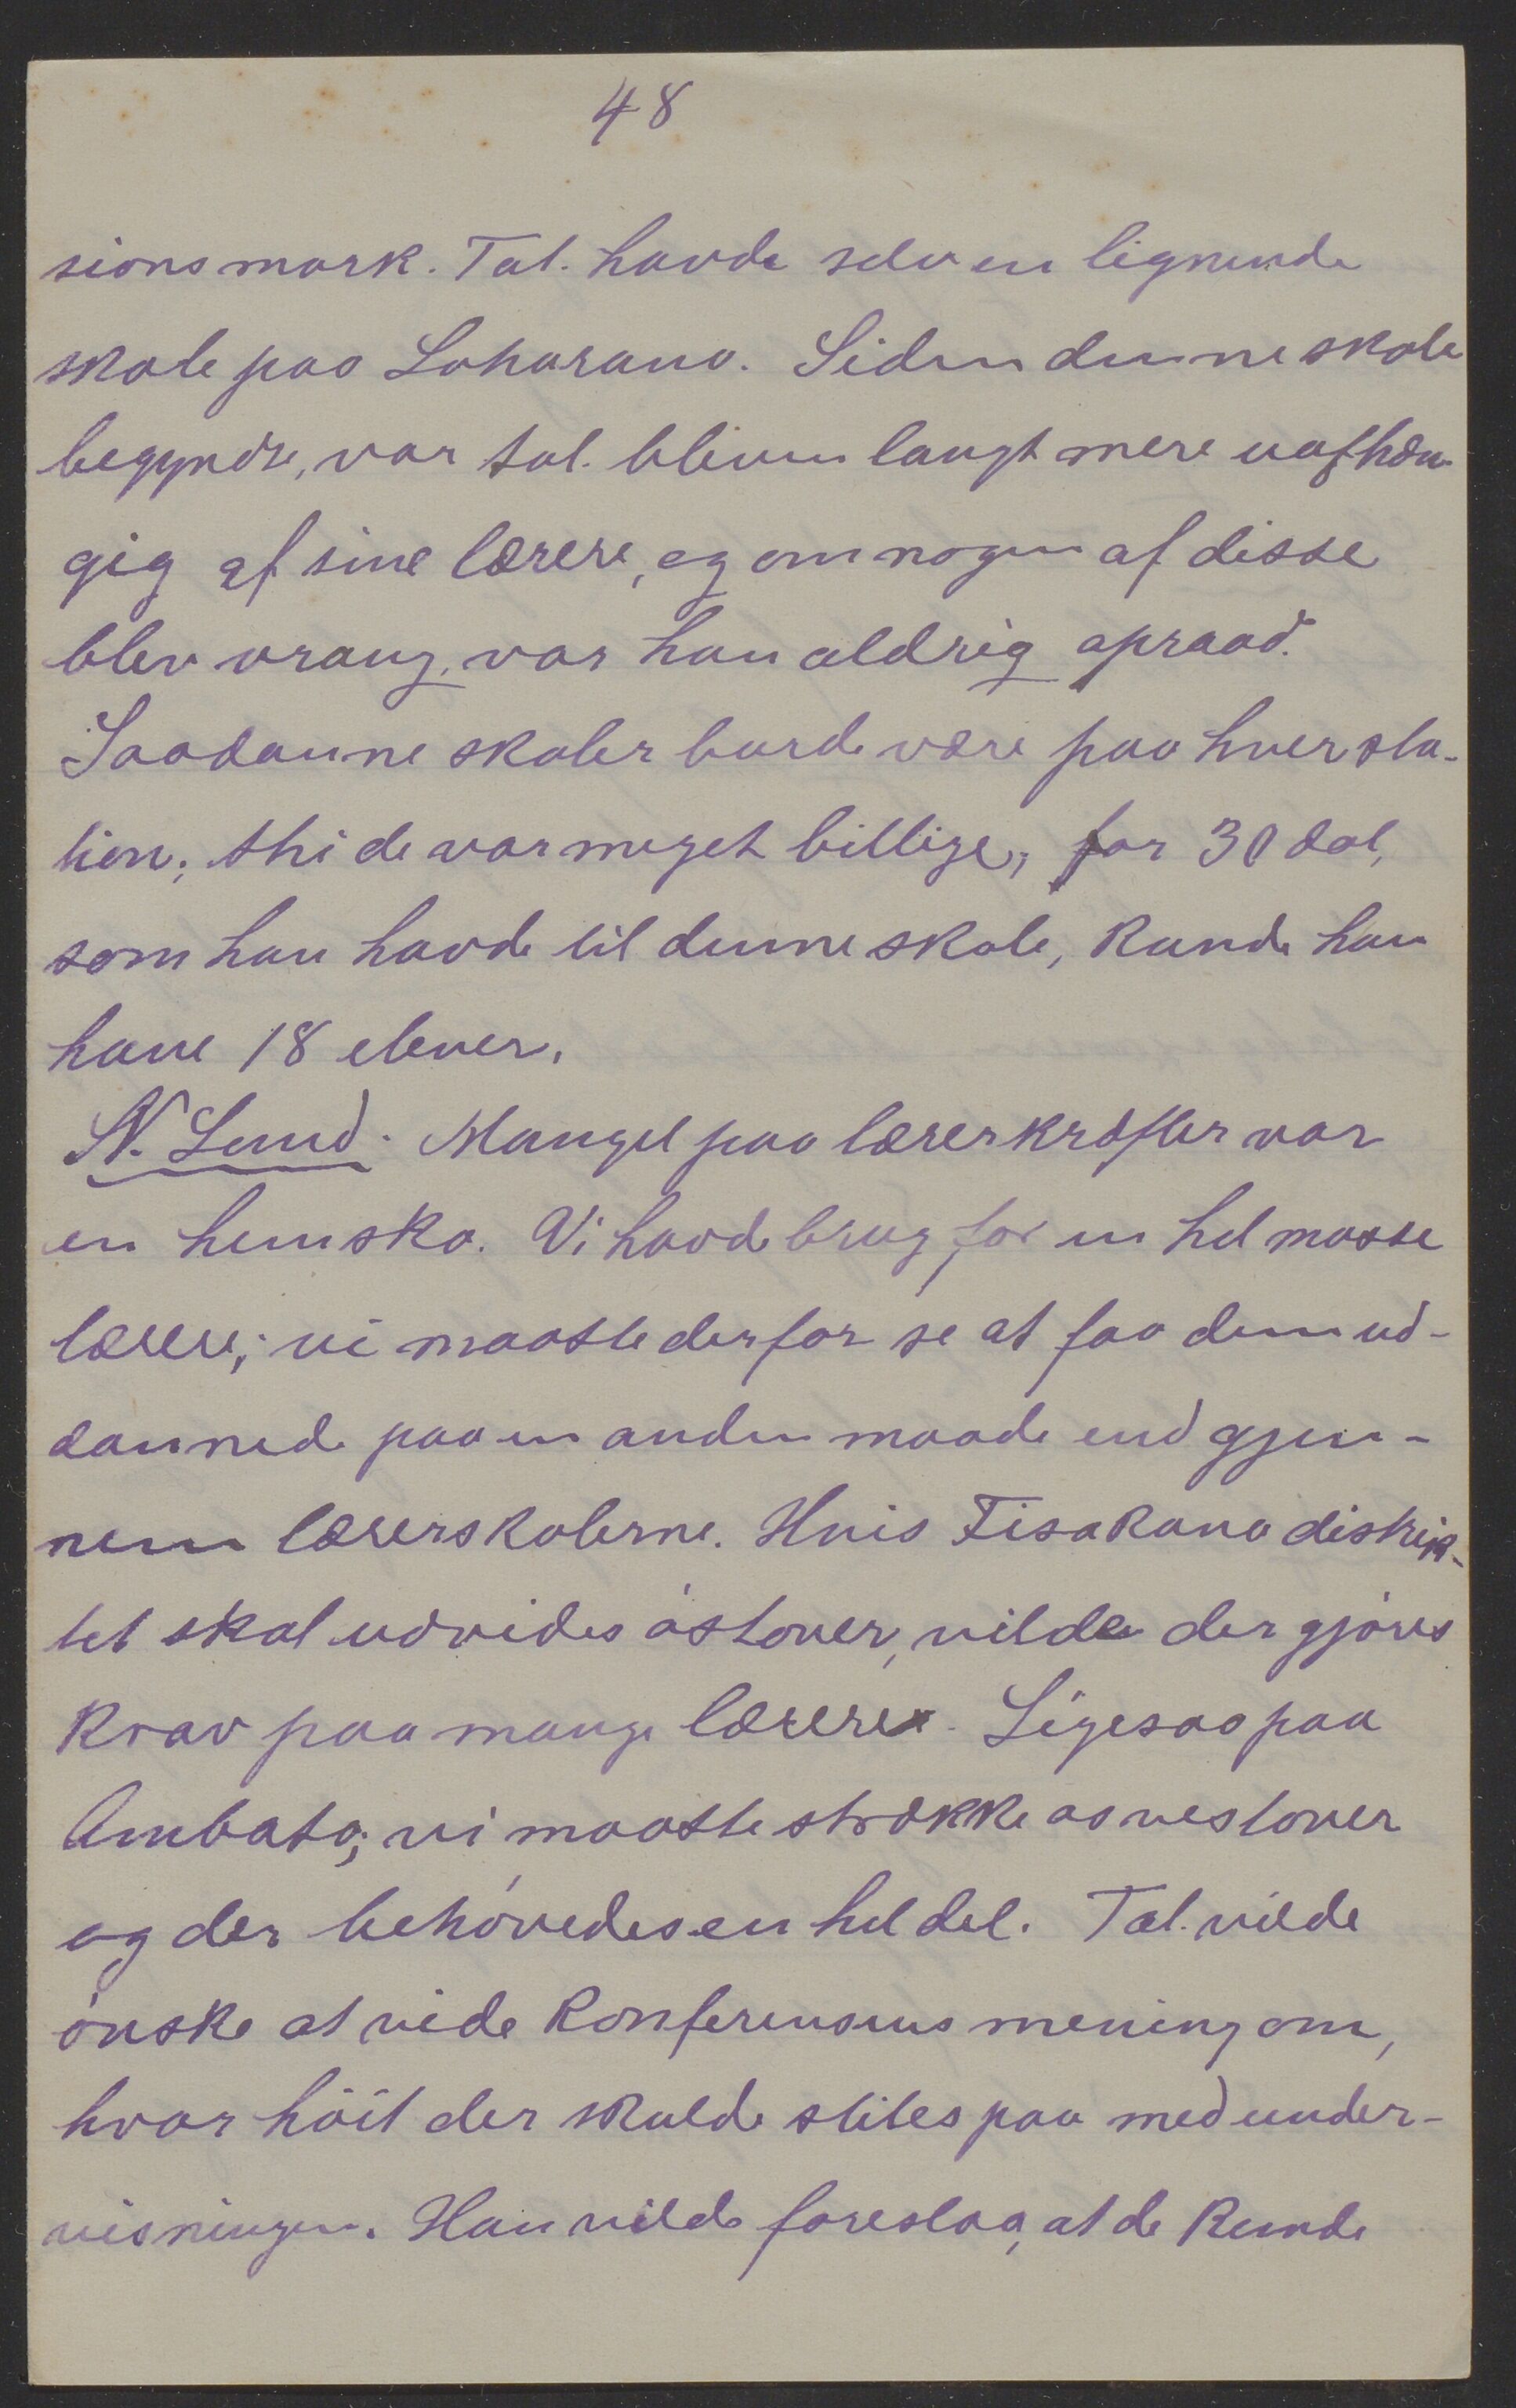 48
sionsmark. Tal. havde selv en lignende
skole paa Loharano. Siden denne skole
begyndte, var tal. bleven langt mere uafhæn-
gig af sine lærere, og om nogen af disse
blev vrang, var han aldrig opraad.
Saadanne skoler burde være paa hver sta-
tion; thi de var meget billige, for 30 dol,
som han havde til denne skole, kunde han
have 18 elever.
N. Lund. Mangel paa lærerkræfter var
en hemsko. Vi havde brug for en hel masse
lærere; vi maatte derfor se at faa dem ud-
dannede paa en anden maade end gjen-
nem lærerskolerne. Hvis Fisakana distrik-
tet skal udvides östover, vilde der gjöres
krav paa mange lærere. Ligesaa paa
Ambato; vi maatte strække os vestover
og der behövedes en hel del. Tal. vilde
önske at vide konferensens mening om,
hvor höit der skulde stiles paa med under-
visningen. Han vilde foreslaa, at de kunde